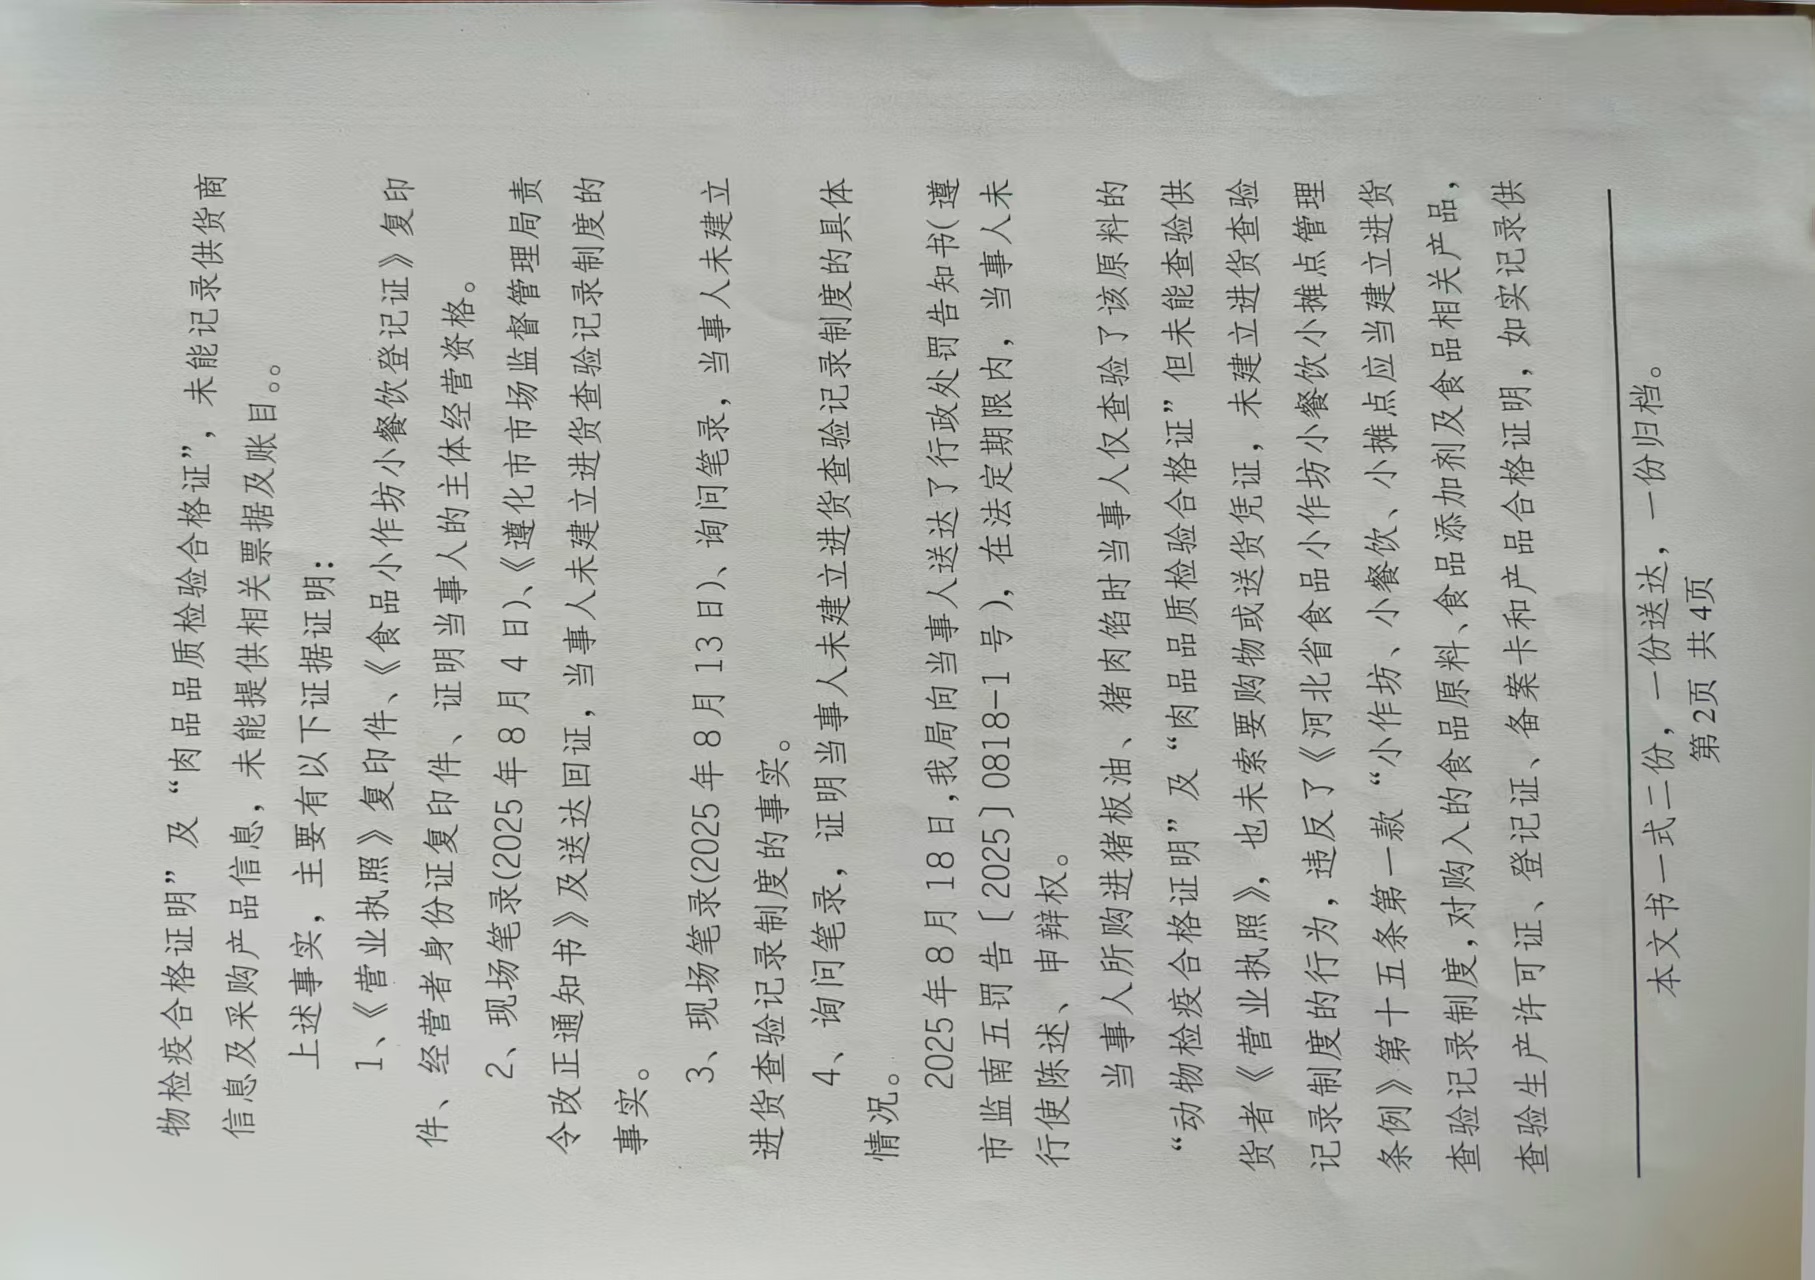 物检疫合格证明”及“肉品品质检验合格证”，未能记录供货商
信息及采购产品信息，未能提供相关票据及账目。。
上述事实，主要有以下证据证明：
1、《营业执照》复印件、《食品小作坊小餐饮登记证》复印
件、经营者身份证复印件、证明当事人的主体经营资格。
2、现场笔录(2025年8月4日)、《遵化市市场监督管理局责
令改正通知书》及送达回证，当事人未建立进货查验记录制度的
事实。
3、现场笔录(2025年8月13日)、询问笔录，当事人未建立
进货查验记录制度的事实。
4、询问笔录，证明当事人未建立进货查验记录制度的具体
情况。
2025年8月18日,我局向当事人送达了行政处罚告知书(遵
市监南五罚告〔2025〕0818-1号)，在法定期限内，当事人未
行使陈述、申辩权。
当事人所购进猪板油、猪肉馅时当事人仅查验了该原料的
“动物检疫合格证明”及“肉品品质检验合格证”但未能查验供
货者《营业执照》，也未索要购物或送货凭证，未建立进货查验
记录制度的行为，违反了《河北省食品小作坊小餐饮小摊点管理
条例》第十五条第一款“小作坊、小餐饮、小摊点应当建立进货
查验记录制度,对购入的食品原料、食品添加剂及食品相关产品，
查验生产许可证、登记证、备案卡和产品合格证明，如实记录供
本文书一式二份，一份送达，一份归档。
第2页 共4页